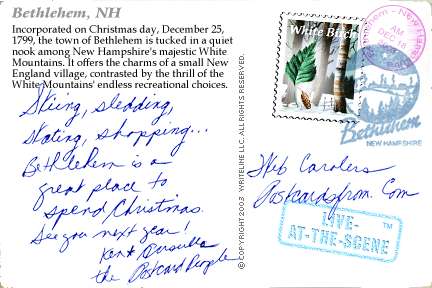 Bethlehem, NH
Incorporated on Christmas day, December 25,
1799, the town of Bethlehem is tucked in a quiet
nook among New Hampshire's majestic White
Mountains. It offers the charms of a small New
England village, contrasted by the thrill of the
White Mountains' endless recreational choices.
Skiing, sledding,
Skating, shopping...
Bethlehem is a
great place to
spend Christmas.
See you next year!
Kent
the Postcard People
© COPYRIGHT 2003 WRITELINE LLC. ALL RIGHTS RESERVED.
White Birch
Bethlehem - New Hamp
AM
DEC 18
Bethlehem
NEW HAMPSHIRE
Web Carolers
Postcardsfrom.Com
LIVE-
AT-THE-SCENE
TM